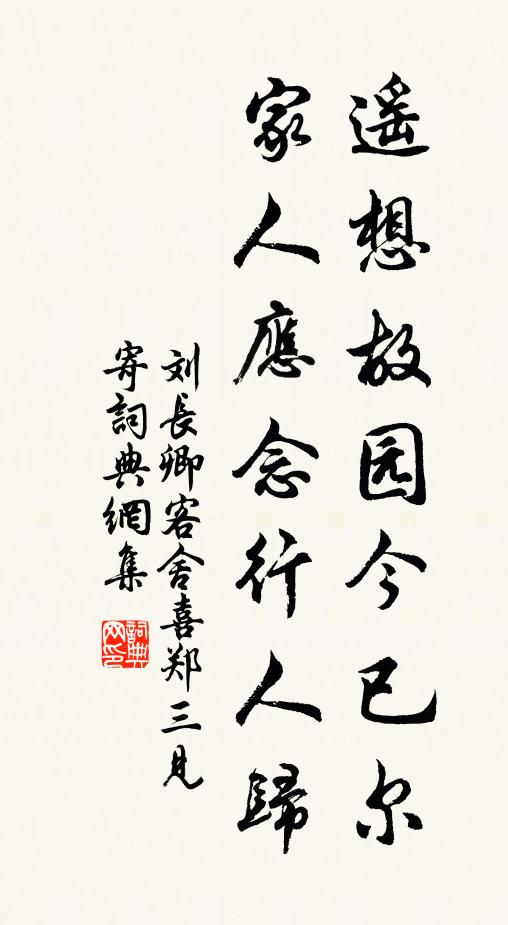 遥想故园今已尔
家人應念行人歸
刘長卿客舍喜郑三见
寄詞典網集
詞典
网印